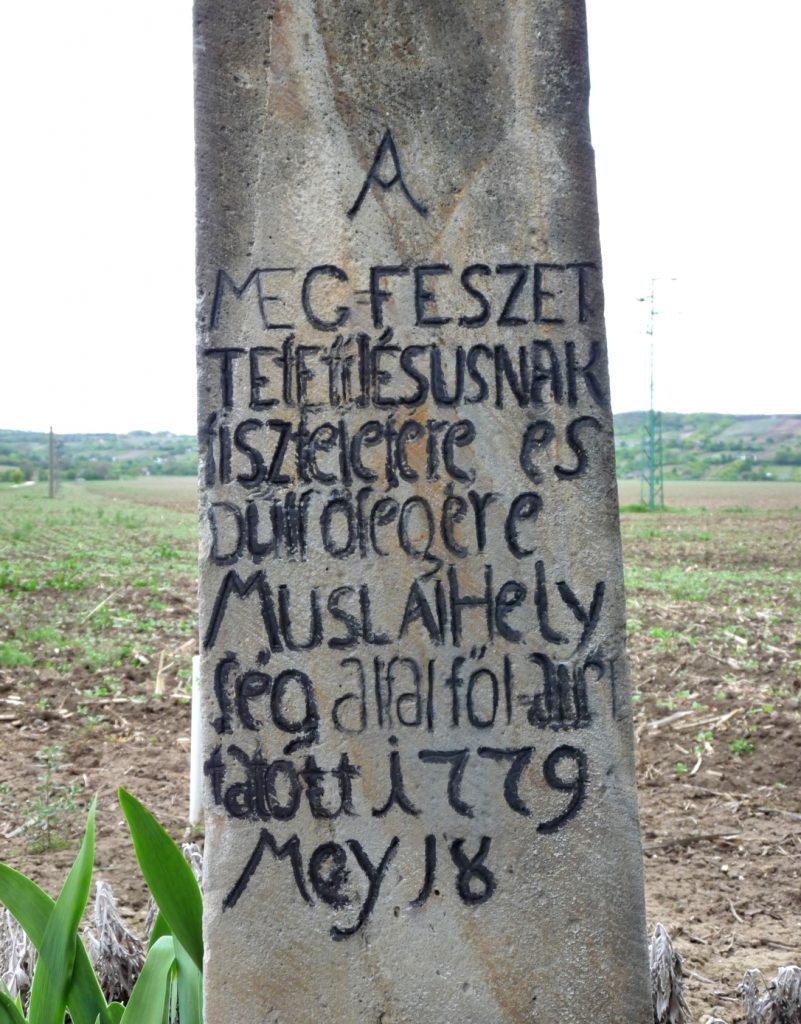 A
MEG-FESZET
TETETT JÉSUSNAK
tiszteletere es
DüttSősegere
MUSLÁIHely
ség által föl-állit
tatott 1779
Mey 18